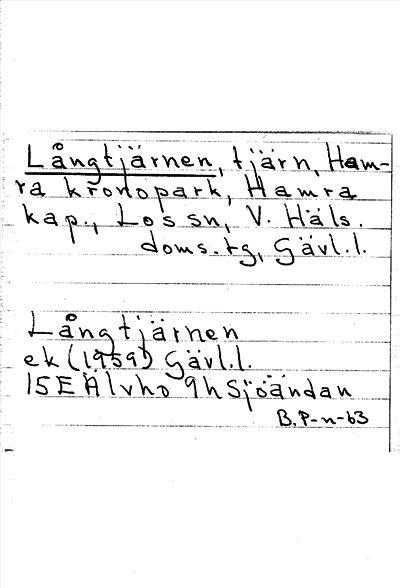 Långtjärnen, tjärn, Ham-
ra kronopark, Hamra
kap., Los sn, V. Häls.
doms.tg, Gävl.l.
Långtjärnen
ek (1959) Gävl.l.
15E Älvho 9h Sjöändan
B.P-n-63